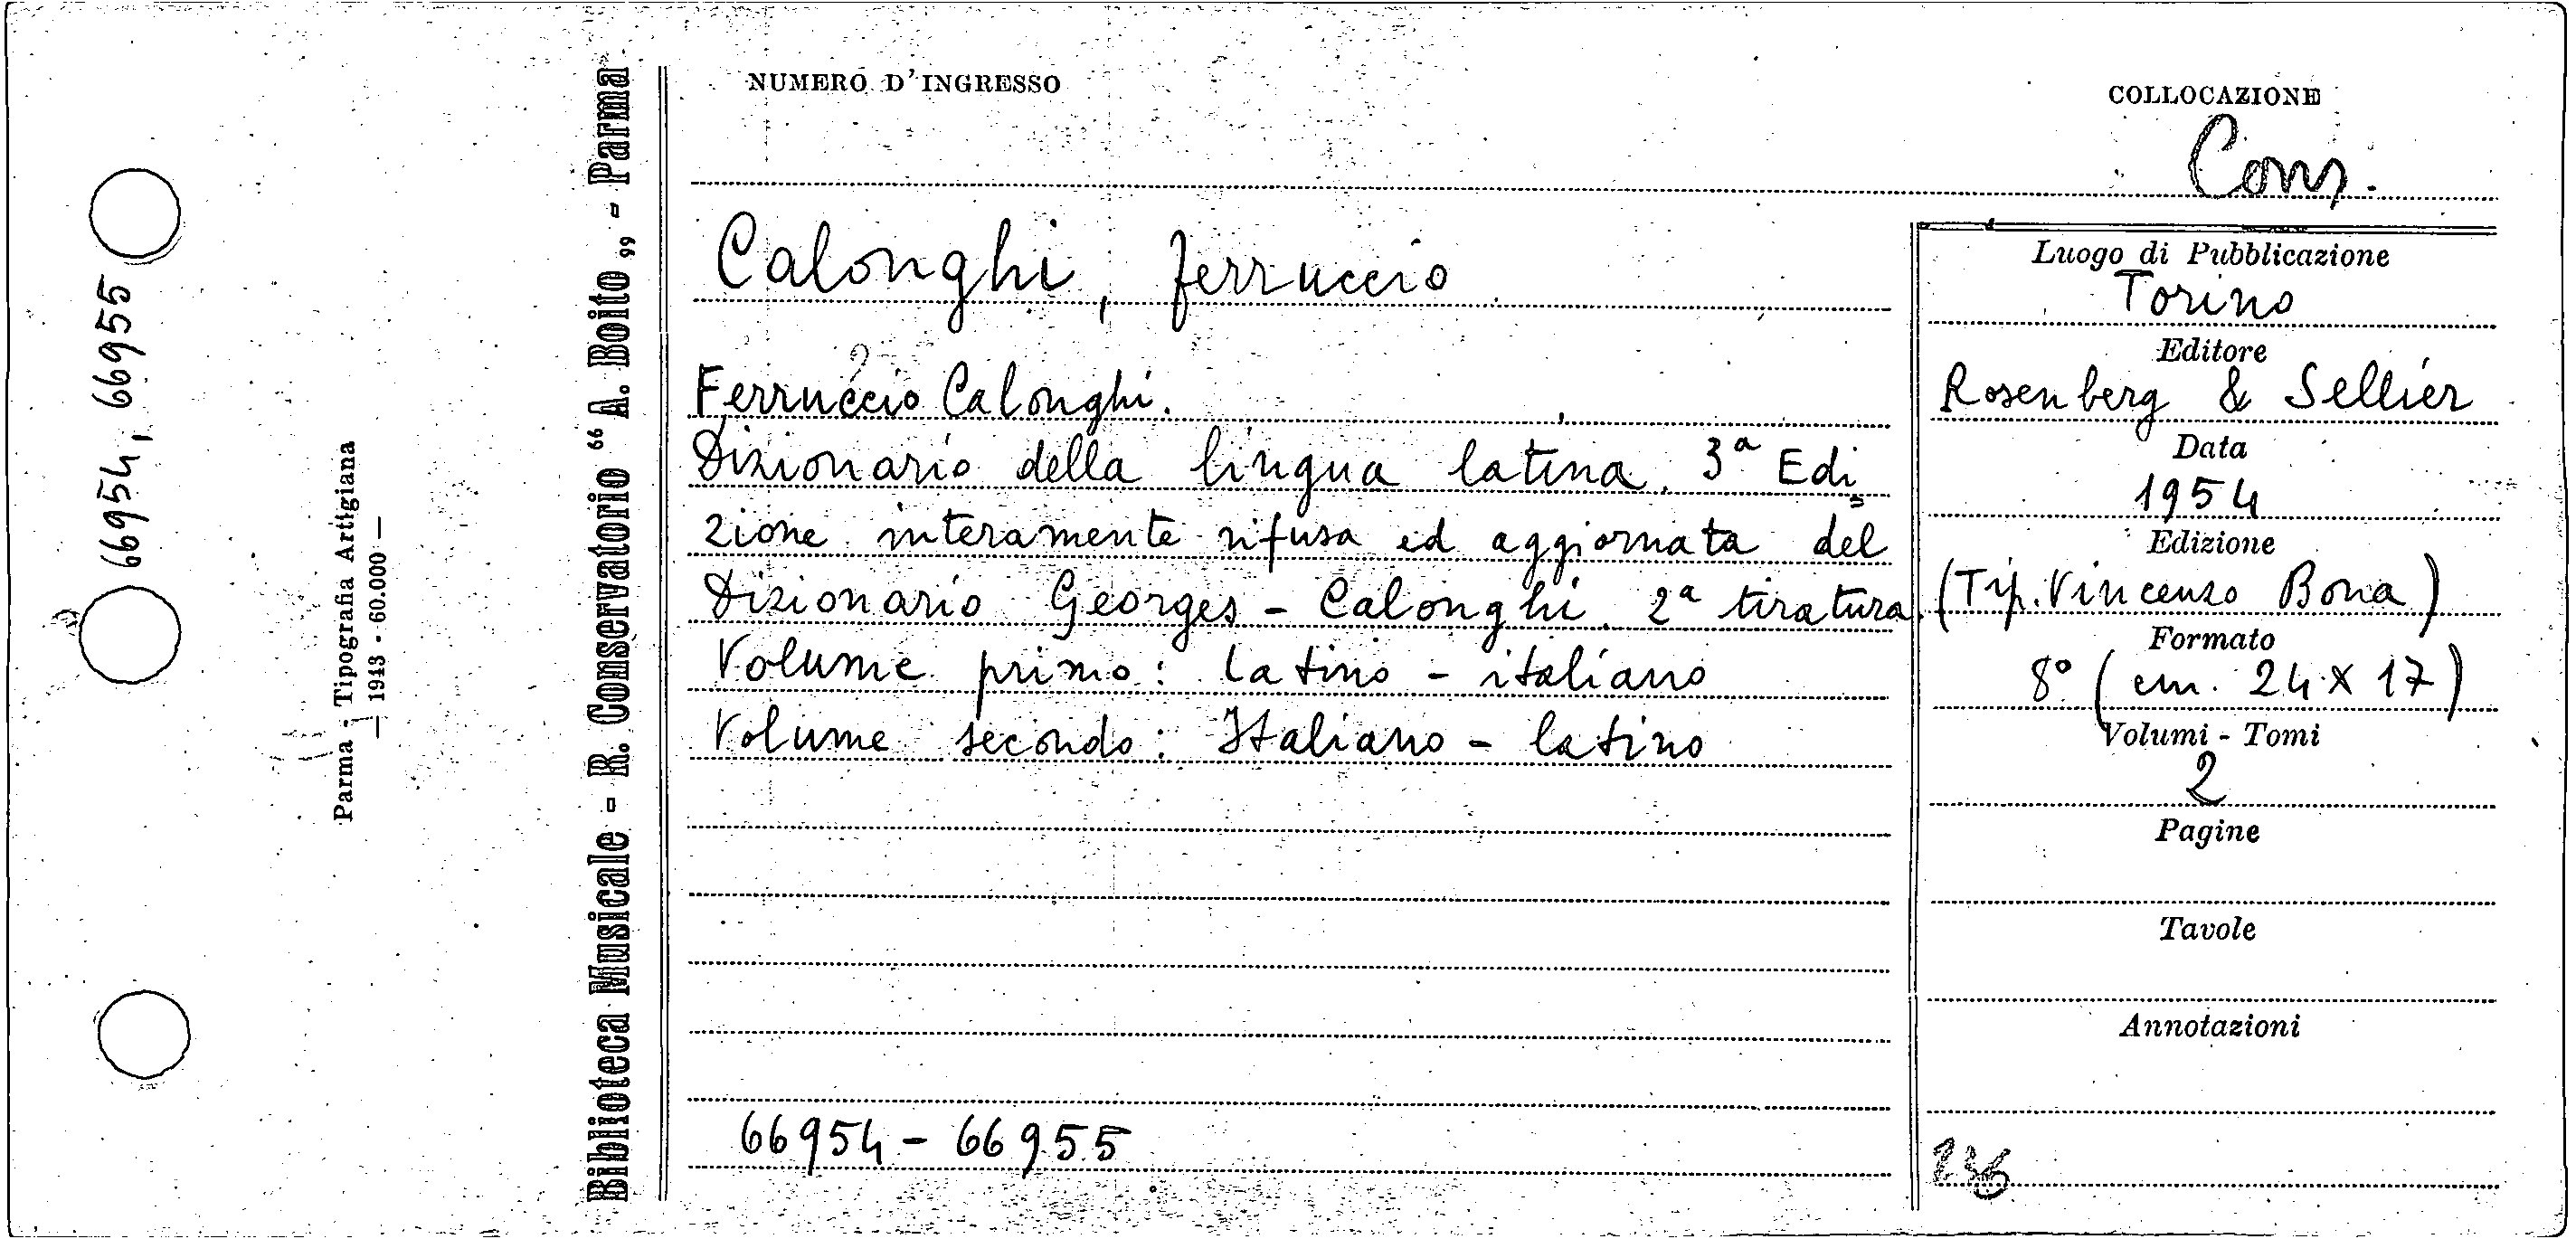 66954, 66955
Parma - Tipografia Artigiana
— 1943 - 60.000 —
Biblioteca Musicale - R. Conservatorio “ A. Boito „ - Parma
NUMERO D'INGRESSO
COLLOCAZIONE
Cons.
Calonghi, Ferruccio
Ferruccio Calonghi.
Dizionario della lingua latina. 3ª Edi=
zione interamente rifusa ed aggiornata del
Dizionario Georges - Calonghi. 2ª tiratura.
Volume primo: latino - italiano
Volume secondo: Italiano - latino
66954 - 66955
Luogo di Pubblicazione
Torino
Editore
Rosenberg & Sellier
Data
1954
Edizione
(Tip. Vincenzo Bona)
Formato
8° (cm. 24 x 17)
Volumi - Tomi
2
Pagine
Tavole
Annotazioni
236